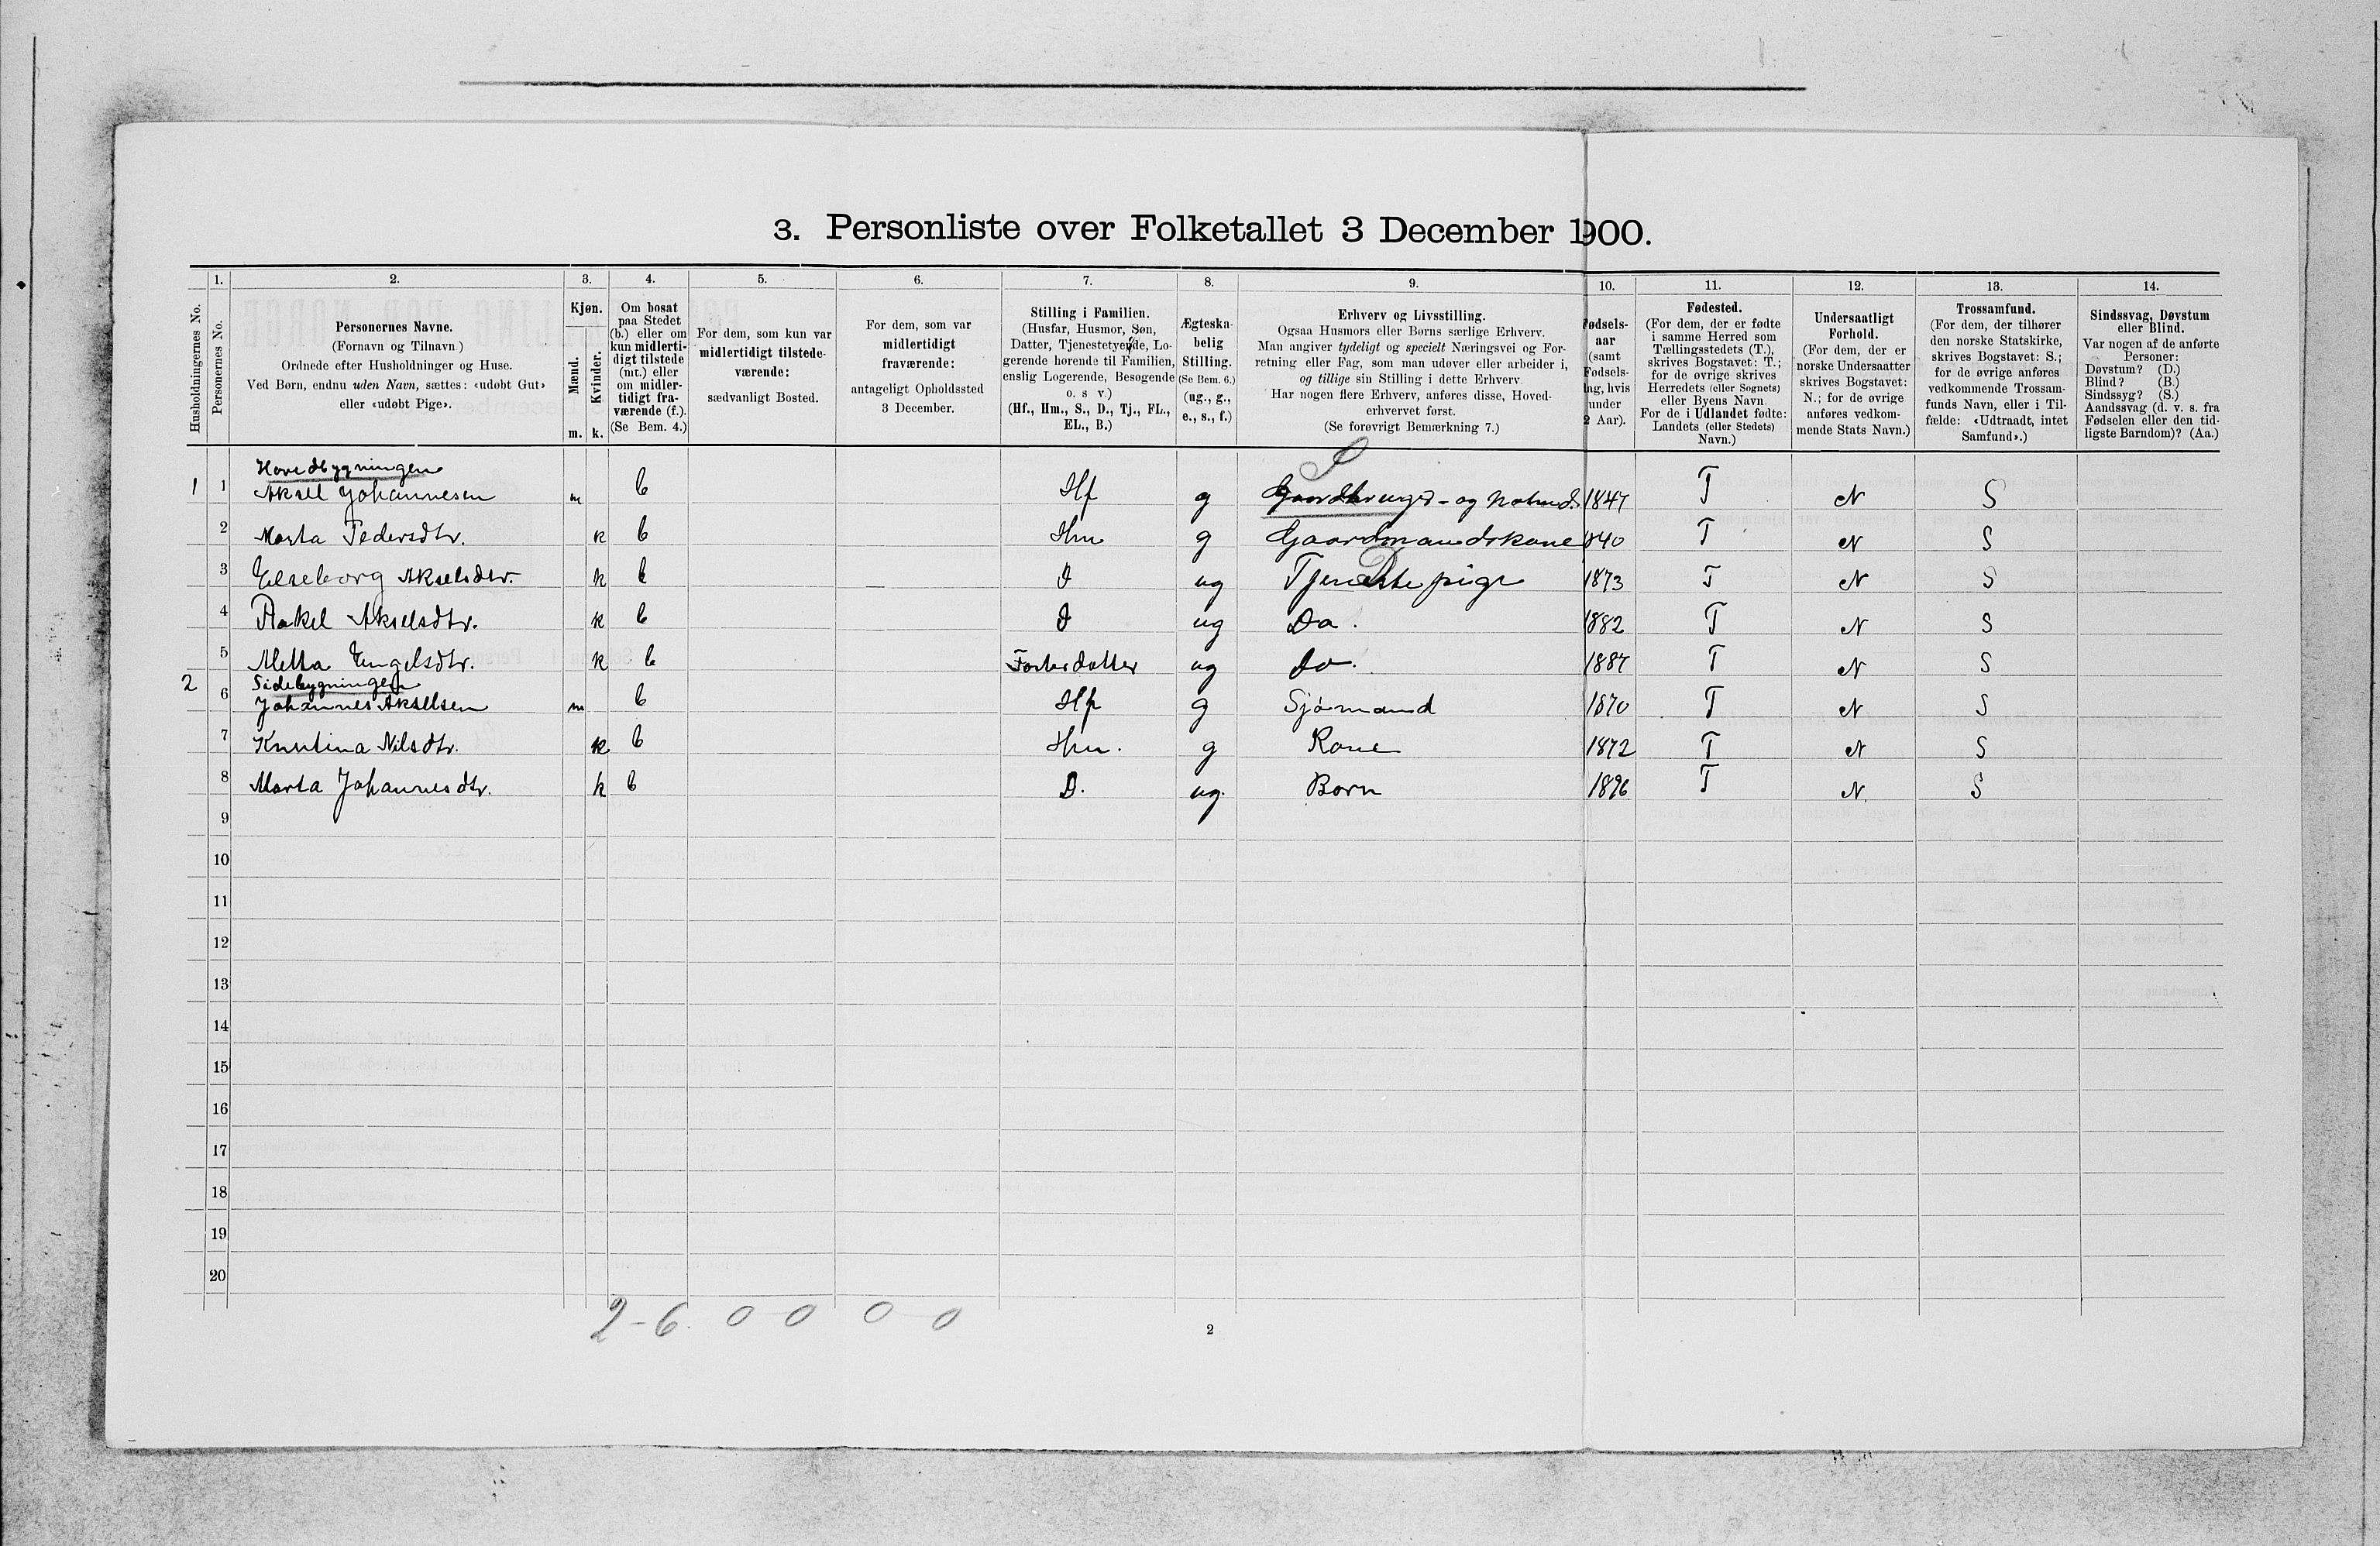 3. Personliste over Folketallet 3 December 1900.
1. 2. 3. 4. 5. 6. 7. 8. 9. 10. 11. 12. 13. 14.
Husholdningernes No.
Personernes No.
Personernes Navne.
(Fornavn og Tilnavn.)
Ordnede efter Husholdninger og Huse.
Ved Børn, endnu uden Navn, sættes: «udøbt Gut»
eller «udøbt Pige».
Kjøn.
Mænd.
Kvinder.
m. k.
Om bosat
paa Stedet
(b.) eller om
kun midlerti-
digt tilstede
(mt.) eller
om midler-
tidigt fra-
værende (f.).
(Se Bem. 4.)
For dem, som kun var
midlertidigt tilstede-
værende:
sædvanligt Bosted.
For dem, som var
midlertidigt
fraværende:
antageligt Opholdssted
3 December.
Stilling i Familien.
(Husfar, Husmor, Søn,
Datter, Tjenestetyende, Lo-
gerende hørende til Familien,
enslig Logerende, Besøgende
o. s v.)
(Hf., Hm., S., D., Tj., FL.,
EL., B.)
Ægteska-
belig
Stilling.
(Se Bem. 6.)
(ug., g.,
e., s., f.)
Erhverv og Livsstilling.
Ogsaa Husmors eller Børns særlige Erhverv.
Man angiver tydeligt og specielt Næringsvei og For-
retning eller Fag, som man udøver eller arbeider i,
og tillige sin Stilling i dette Erhverv.
Har nogen flere Erhverv, anføres disse, Hoved-
erhvervet først.
(Se forøvrigt Bemærkning 7.)
Fødsels-
aar
(samt
Fødsels-
dag, hvis
under
2 Aar).
Fødested.
(For dem, der er fødte
i samme Herred som
Tællingsstedets (T.),
skrives Bogstavet: T.;
for de øvrige skrives
Herredets (eller Sognets)
eller Byens Navn.
For de i Udlandet fødte:
Landets (eller Stedets)
Navn.)
Undersaatligt
Forhold.
(For dem, der er
norske Undersaatter
skrives Bogstavet:
N.; for de øvrige
anføres vedkom-
mende Stats Navn.)
Trossamfund.
(For dem, der tilhører
den norske Statskirke,
skrives Bogstavet: S.;
for de øvrige anføres
vedkommende Trossam-
funds Navn, eller i Til-
fælde: «Udtraadt, intet
Samfund».)
Sindssvag, Døvstum
eller Blind.
Var nogen af de anførte
Personer:
Døvstum? (D.)
Blind? (B.)
Sindssyg? (S.)
Aandssvag (d. v. s. fra
Fødselen eller den tid-
ligste Barndom)? (Aa.)
Hovedbygningen
1 1 Aksel Johannesen m b Hf g Gaardbruger- og 1847 T N S
2 Marta Pedersdtr. k b Hm g Gaardmandskone 1840 T N S
3 Elseborg Akselsdtr. k b D ug Tjenestepige 1873 T N S
4 Rakel Akselsdtr. k b D ug Do. 1882 T N S
5 Metta Engelsdtr. k b Fosterdatter ug do. 1887 T N S
Sidebygningen
2 6 Johannes Akselsen m b Hf g Sjømand 1870 T N S
7 Kristina Nilsdtr. k b Hm. g Kone 1872 T N S
8 Marta Johannesdtr. k b D. ug. Barn 1896 T N. S
9
10
11
12
13
14
15
16
17
18
19
20
2-6. 0 0 0 0
2